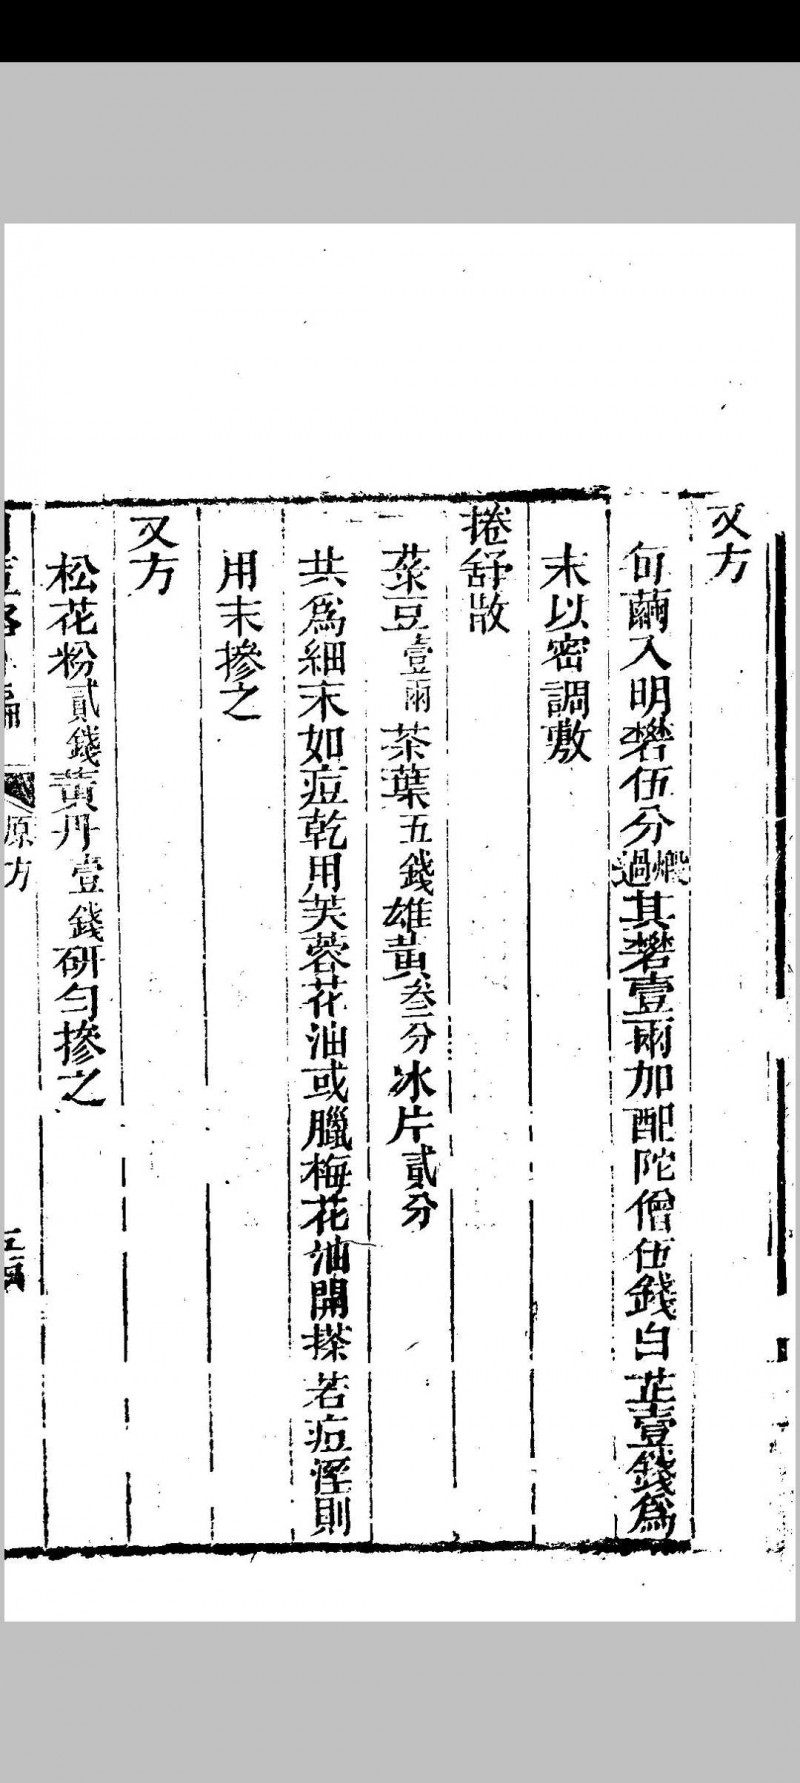 又方
每繭入明礬伍分煅過其礬壹兩加配陀僧伍錢白芷壹錢爲
末以密調敷
捲舒散
菉豆壹兩茶葉五錢雄黃叁分冰片貳分
共爲細末如痘乾用芙蓉花油或臘梅花油開搽若痘溼則
用末摻之
又方
松花粉貳錢黃丹壹錢研勻摻之
原方